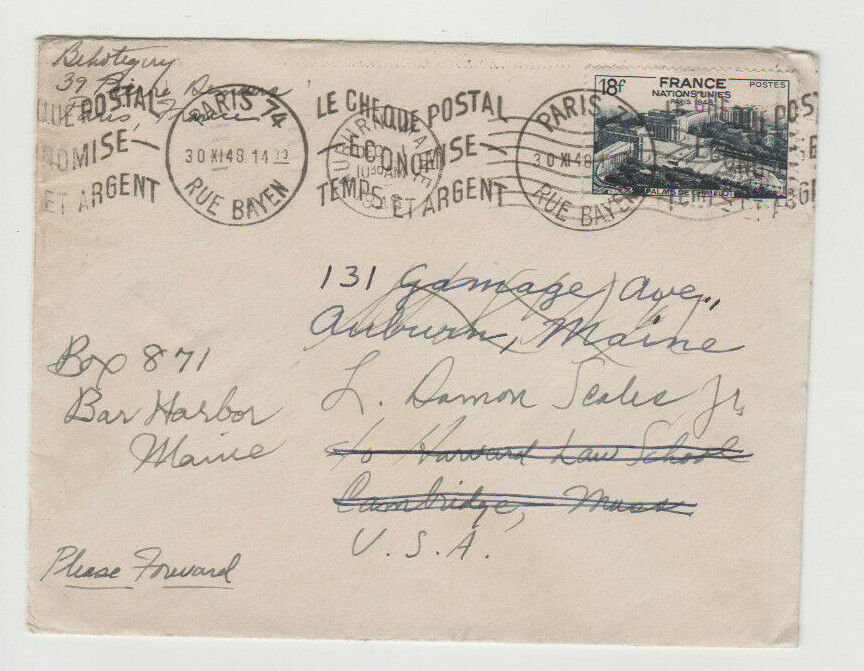 39
Paris, France
QUE POSTAL
NOMISE
ET ARGENT
PARIS 74
30 XI 48 14
RUE BAYEN
LE CHEQUE POSTAL
ECONOMISE
TEMPS ET ARGENT
AUBURN MAINE
1030 AM
PARIS 7
30 XI 48
RUE BAYEN
18f
FRANCE
POSTES
NATIONS UNIES
PARIS 1948
PALAIS DE CHAILLOT
131 Gamage Ave.,
Auburn, Maine
L. Damon Scales Jr.
c/o Harvard Law School
Cambridge, Mass
U.S.A.
Box 871
Bar Harbor
Maine
Please Forward